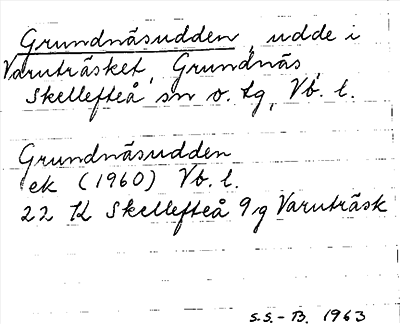 Grundnäsudden, udde i
Varuträsket, Grundnäs,
Skellefteå sn o. tg, Vb. l.
Grundnäsudden
ek (1960) Vb. l.
22 K Skellefteå 9g Varuträsk
S.S.-B. 1963